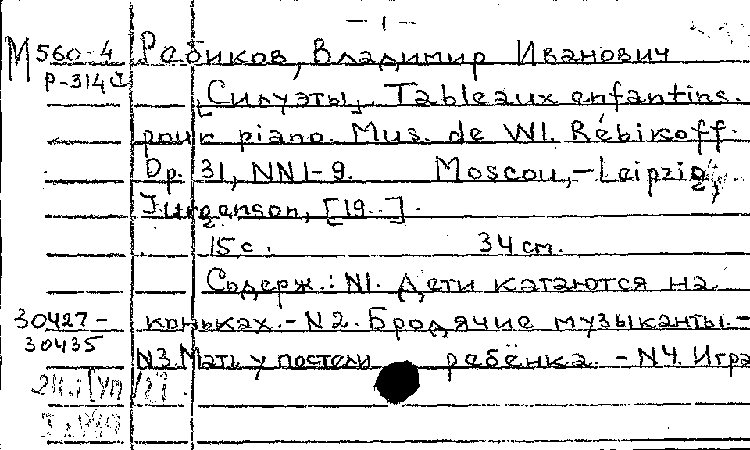 - 1 -
М 560-4 Ребиков, Владимир Иванович
Р-314с
[Силуэты]. Tableaux enfantins.
pour piano. Mus. de Wl. Rébikoff.
Op. 31, NN1-9. Moscou,-Leipzig,
Jurgenson, [19..].
15 с. 34 см.
Содерж.: N1. Дети катаются на
30427- коньках.-N2. Бродячие музыканты.-
30435
N3. Мать у постели ребёнка. -N4. Игра